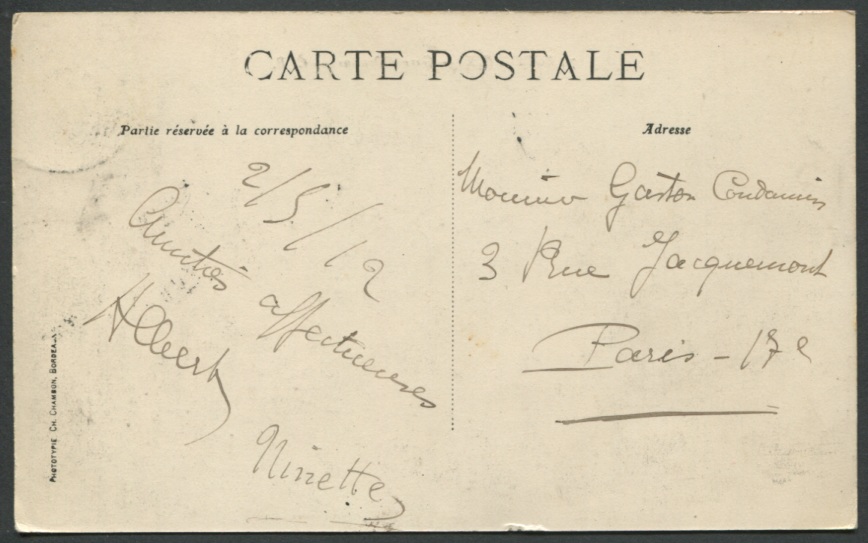 CARTE POSTALE
Partie réservée à la correspondance
Adresse
2/5/12
Amitiés affectueuses
Albert
Ninette
Monsieur Gaston Condamin
3 Rue Jacquemont
Paris - 17e
PHOTOTYPIE CH. CHAMBON, BORDEAUX